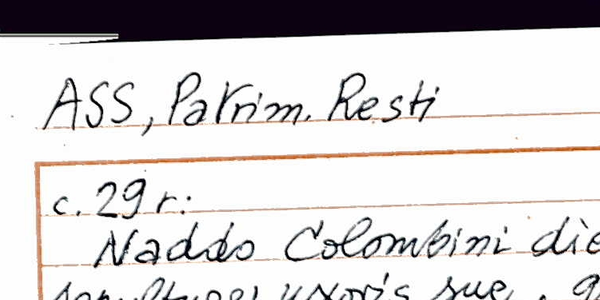 ASS, Patrim. Resti
c. 29 r:
Naddo Colombini die
sepulture uxoris sue